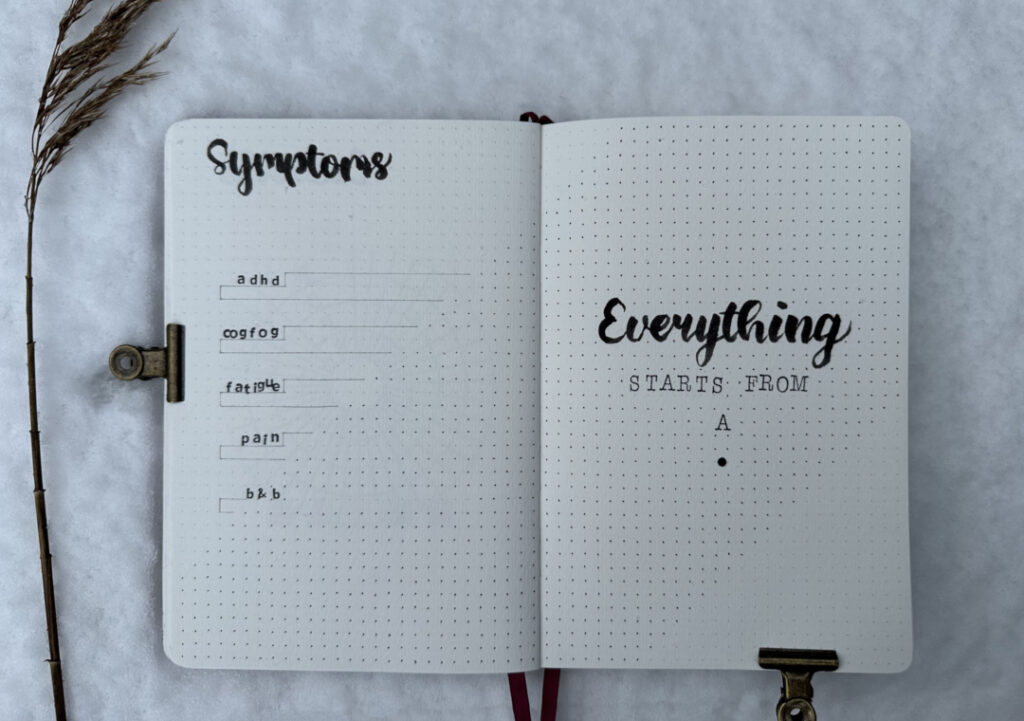 Symptoms
adhd
cogfog
fatigue
pain
b&b
Everything
STARTS FROM
A
•